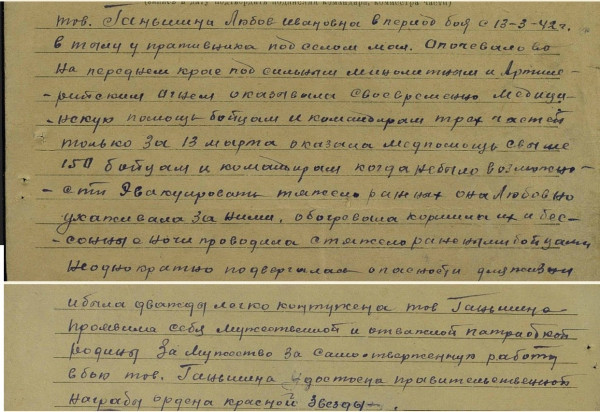 тов. Ганьшина Любов ивановна в период боя с 13-3-42 г.
в тылу у пративника под селом мал. Опочевалово
На переднем крае под сильным минометным и Артиле-
-рийским огнем оказывала своевременно медици-
-нскую помощь бойцам и командирам трех частей
только за 13 марта оказала медпомощь свыше
150 бойцам и командирам когда небыло возможно-
-сти Эвакуировать тяжело раных она Любовно
ухаживала за ними, обогревала кормила их и бес-
-сонные ночи проводила с тяжело ранеными бойцами
Неоднократно подвергалась опасности для жизни
и была дважды легко контужена тов Ганьшина
проявила себя мужественной и отважной патриоткой
родины За мужество за само-отверженную работу
в бою тов. Ганьшина удостоена правительственной
награды ордена красной звезды.